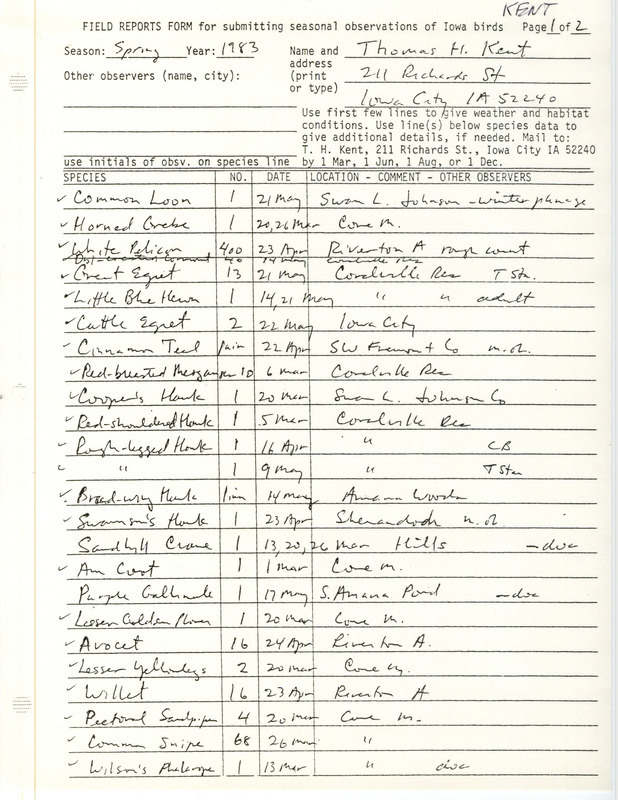 KENT
FIELD REPORTS FORM for submitting seasonal observations of Iowa birds Page 1 of 2
Season: Spring Year: 1983 Name and Thomas H. Kent
address
Other observers (name, city): (print 211 Richards St
or type)
Iowa City IA 52240
Use first few lines to give weather and habitat
conditions. Use line(s) below species data to
give additional details, if needed. Mail to:
T. H. Kent, 211 Richards St., Iowa City IA 52240
use initials of obsv. on species line by 1 Mar, 1 Jun, 1 Aug, or 1 Dec.
SPECIES NO. DATE LOCATION - COMMENT - OTHER OBSERVERS
✓ Common Loon 1 21 May Swan L. Johnson - winter plumage
✓ Horned Grebe 1 20,26 Mar Cone M.
✓ White Pelican 400 23 Apr Riverton A rough count
Dbl-crested Cormorant 40 14 May Coralville Res
✓ Great Egret 13 21 May Coralville Res T Sta.
✓ Little Blue Heron 1 14,21 May " " adult
✓ Cattle Egret 2 22 May Iowa City
✓ Cinnamon Teal pair 22 Apr SW Fremont Co m.ob.
✓ Red-breasted Merganser 10 6 Mar Coralville Res
✓ Cooper's Hawk 1 20 Mar Swan L. Johnson Co
✓ Red-shouldered Hawk 1 5 Mar Coralville Res
✓ Rough-legged Hawk 1 16 Apr " CB
✓ " 1 9 May " T Sta
✓ Broad-wing Hawk 1 14 May Amana Woods
✓ Swainson's Hawk 1 23 Apr Shenandoah m.ob.
Sandhill Crane 1 13,20,26 Mar Hills - doc
✓ Am Coot 1 1 Mar Cone M.
Purple Gallinule 1 17 May S. Amana Pond - doc
✓ Lesser Golden Plover 1 20 Mar Cone M.
✓ Avocet 16 24 Apr Riverton A.
✓ Lesser Yellowlegs 2 20 Mar Cone M.
✓ Willet 16 23 Apr Riverton A
✓ Pectoral Sandpiper 4 20 Mar Cone M.
✓ Common Snipe 68 26 Mar "
✓ Wilson's Phalarope 1 13 Mar " doc